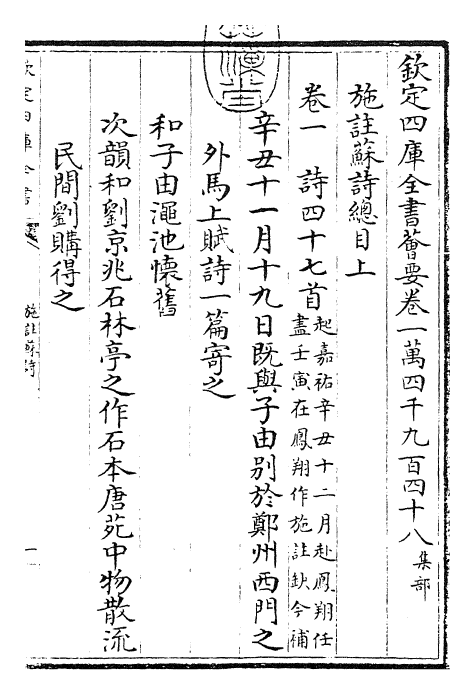 欽定四庫全書薈要卷一萬四千九百四十八集部
施註蘇詩總目上
卷一　詩四十七首起嘉祐辛丑十二月赴鳳翔任
盡壬寅在鳳翔作施註缺今補
辛丑十一月十九日既與子由别於鄭州西門之
外馬上賦詩一篇寄之
和子由澠池懷舊
次韻和劉京兆石林亭之作石本唐苑中物散流
民間劉購得之
欽定四庫全書
施註蘇詩
一